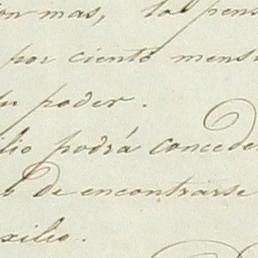 mas, la pens
por ciento mens
su poder.
lio podrá conceder
de encontrarse
xilio.